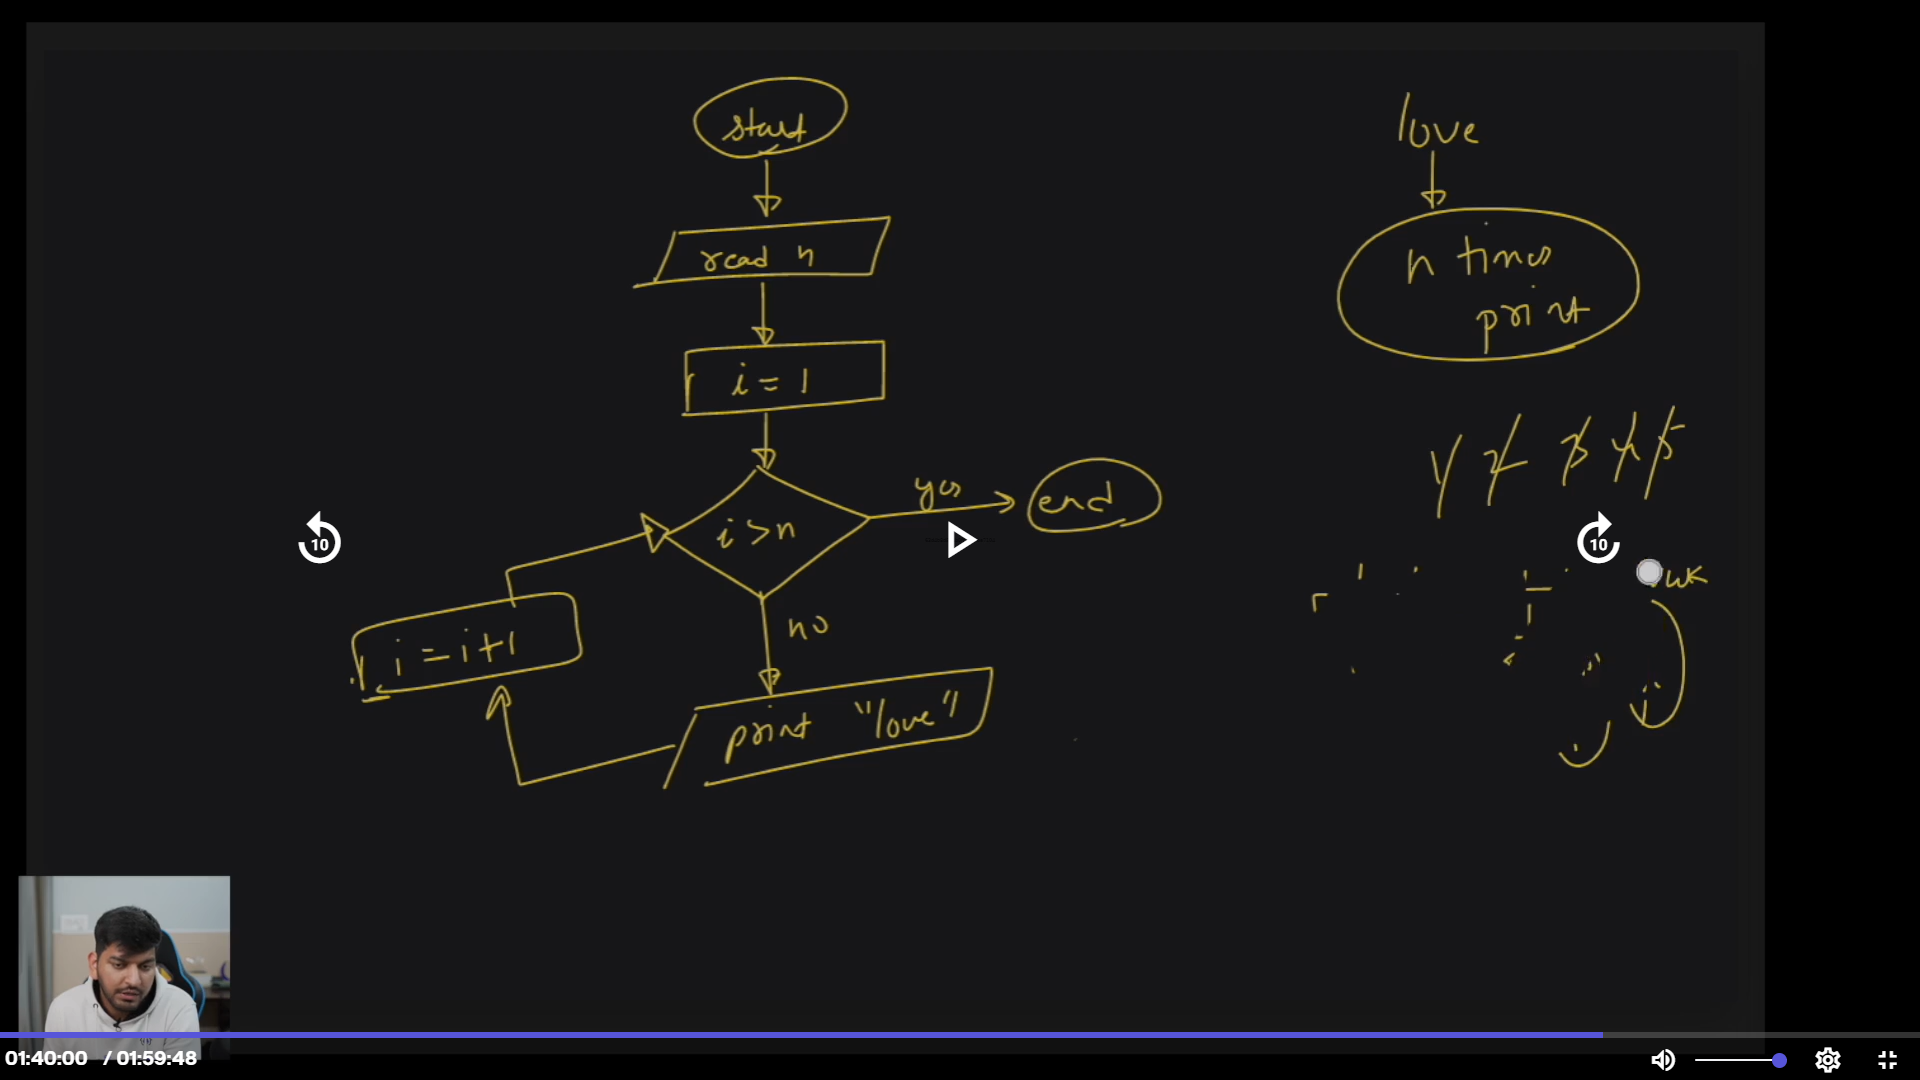 start
read n
i = 1
i > n
yes
end
no
i = i+1
print "love"
love
n times
print
1 2 3 4 5
10
10
01:40:00 / 01:59:48